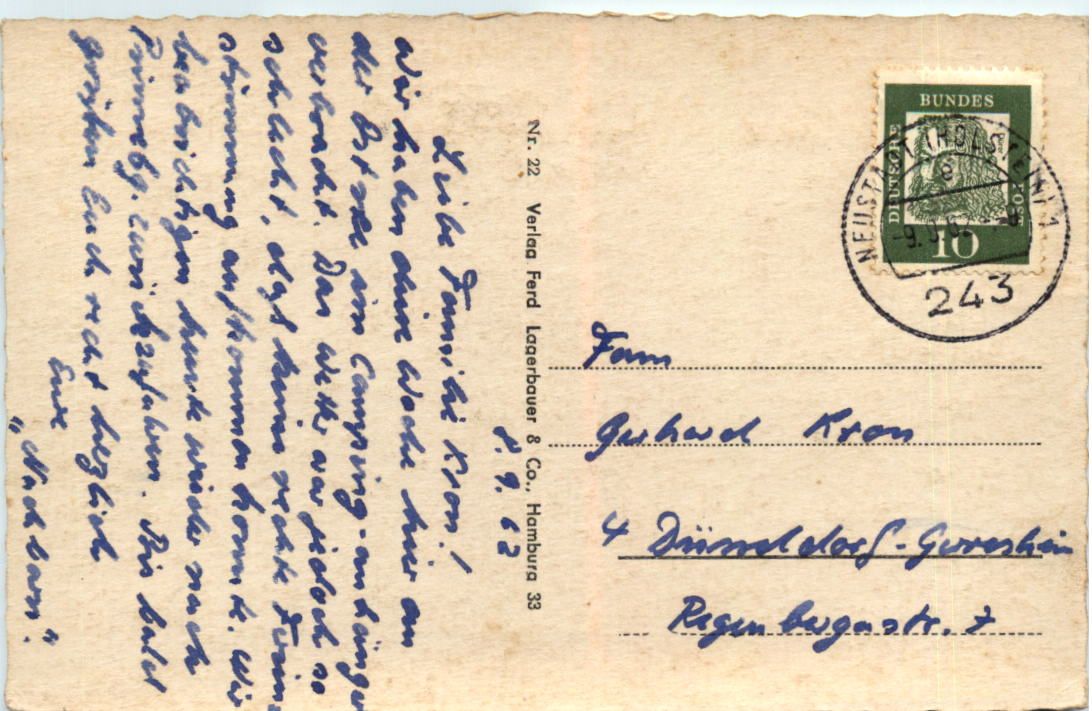 8.9.62
Liebe Familie Kron!
Wir haben eine Woche hier an
der Ostsee im Camping-anhänger
verbracht. Das Wetter war jedoch so
schlecht, daß keine rechte Ferien
stimmung aufkommen konnte. Wir
beabsichtigen heute wieder nach
zurückzufahren. Bis bald
grüßen Euch recht herzlich
Eure
"Nachbarn".
Nr. 22 Verlag Ferd Lagerbauer & Co., Hamburg 33
DEUTSCHE BUNDESPOST
10
NEUSTADT (HOLSTEIN) 1
-9.9.62
243
Fam
Gerhard Kron
4 Düsseldorf-Gerresheim
Regenbergastr. 7